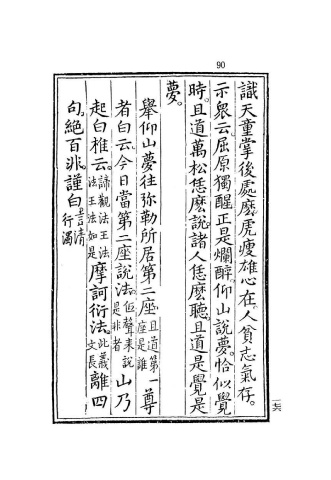 90
識天童掌後處麼。虎瘦雄心在。人貧志氣存。
示眾云。屈原獨醒正是爛醉。仰山說夢。恰似覺
時。且道萬松恁麼說。諸人恁麼聽。且道是覺是
夢。
舉仰山夢往彌勒所居第二座。且道第一座是誰尊
者白云。今日當第二座說法。低聲來說是非者山乃
起白椎云。諦觀法王法法王法如是摩訶衍法。此義文長離四
句。絕百非。謹白言清行濁